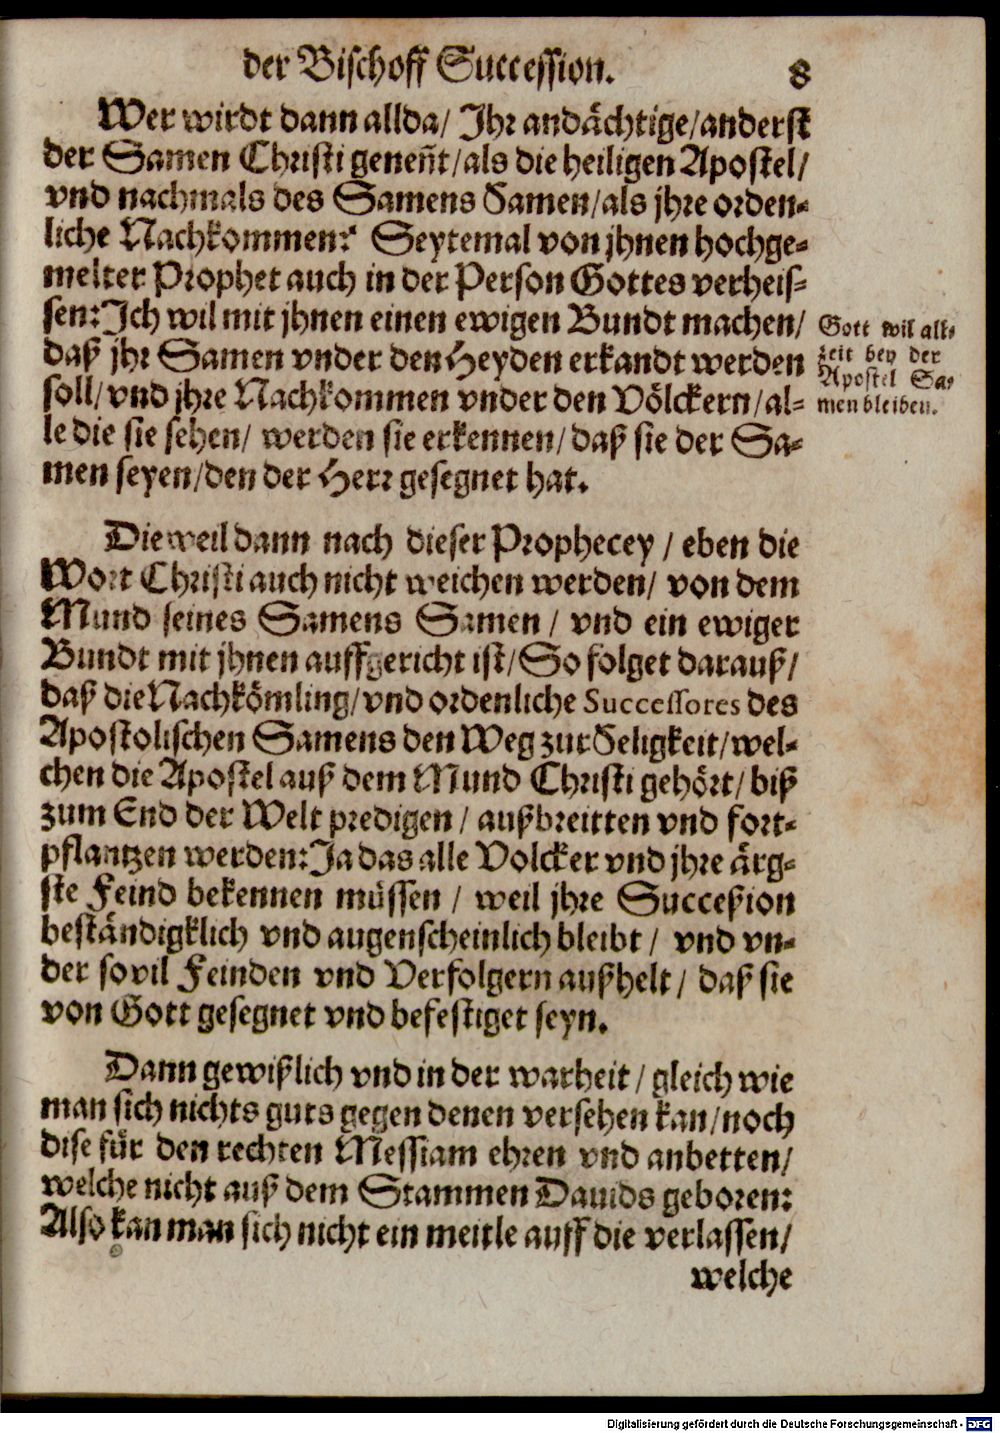 der Bischoff Succession. 8
Wer wirdt dann allda/ Jhr andächtige/anderst
der Samen Christi genen̄t/als die heiligen Apostel/
vnd nachmals des Samens Samen/als jhre orden-
liche Nachkommen? Seytemal von jhnen hochge-
melter Prophet auch in der Person Gottes verheis-
sen: Jch wil mit jhnen einen ewigen Bundt machen/
daß jhr Samen vnder den Heyden erkandt werden
soll/ vnd jhre Nachkommen vnder den Völckern/al-
le die sie sehen/ werden sie erkennen/ daß sie der Sa-
men seyen/den der Herr gesegnet hat.
Gott wil all-
zeit bey der
Apostel Sa-
men bleiben.
Dieweil dann nach dieser Prophecey / eben die
Wort Christi auch nicht weichen werden/ von dem
Mund seines Samens Samen / vnd ein ewiger
Bundt mit jhnen auffgericht ist/ So folget darauß/
daß die Nachkömling/vnd ordenliche Successores des
Apostolischen Samens den Weg zur Seligkeit/wel-
chen die Apostel auß dem Mund Christi gehört/ biß
zum End der Welt predigen / außbreitten vnd fort-
pflantzen werden: Ja das alle Volcker vnd jhre ärg-
ste Feind bekennen müssen / weil jhre Succeßion
beständigklich vnd augenscheinlich bleibt / vnd vn-
der sovil Feinden vnd Verfolgern außhelt / daß sie
von Gott gesegnet vnd befestiget seyn.
Dann gewißlich vnd in der warheit / gleich wie
man sich nichts guts gegen denen versehen kan/noch
dise für den rechten Messiam ehren vnd anbetten/
welche nicht auß dem Stammen Dauids geboren:
Also kan man sich nicht ein meitle auff die verlassen/
welche
Digitalisierung gefördert durch die Deutsche Forschungsgemeinschaft - DFG